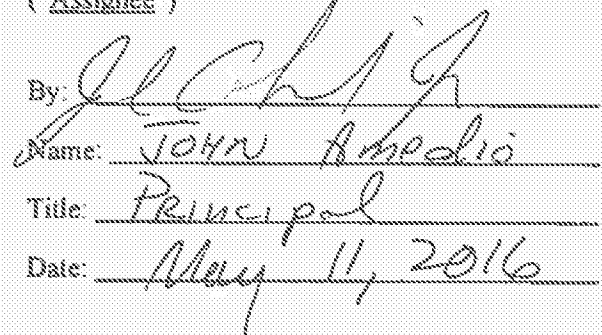 ("Assignee")
By:
Name: JOHN Amedio
Title: Principal
Date: May 11, 2016